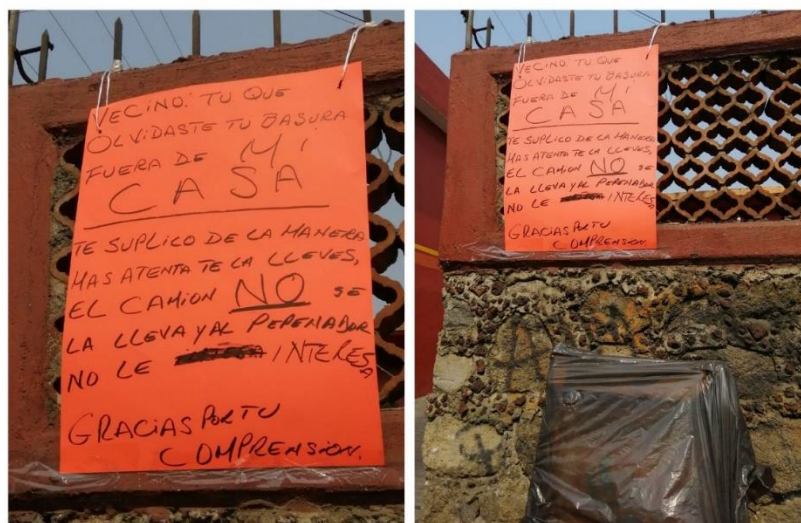 VECINO: TU QUE
OLVIDASTE TU BASURA
FUERA DE MI
CASA
TE SUPLICO DE LA MANERA
MAS ATENTA TE LA LLEVES,
EL CAMION NO SE
LA LLEVA Y AL PEPENADOR
NO LE INTERESA
GRACIAS POR TU
COMPRENSION.
VECINO: TU QUE
OLVIDASTE TU BASURA
FUERA DE MI
CASA
TE SUPLICO DE LA MANERA
MAS ATENTA TE LA LLEVES,
EL CAMION NO SE
LA LLEVA Y AL PEPENADOR
NO LE INTERESA
GRACIAS POR TU
COMPRENSION.